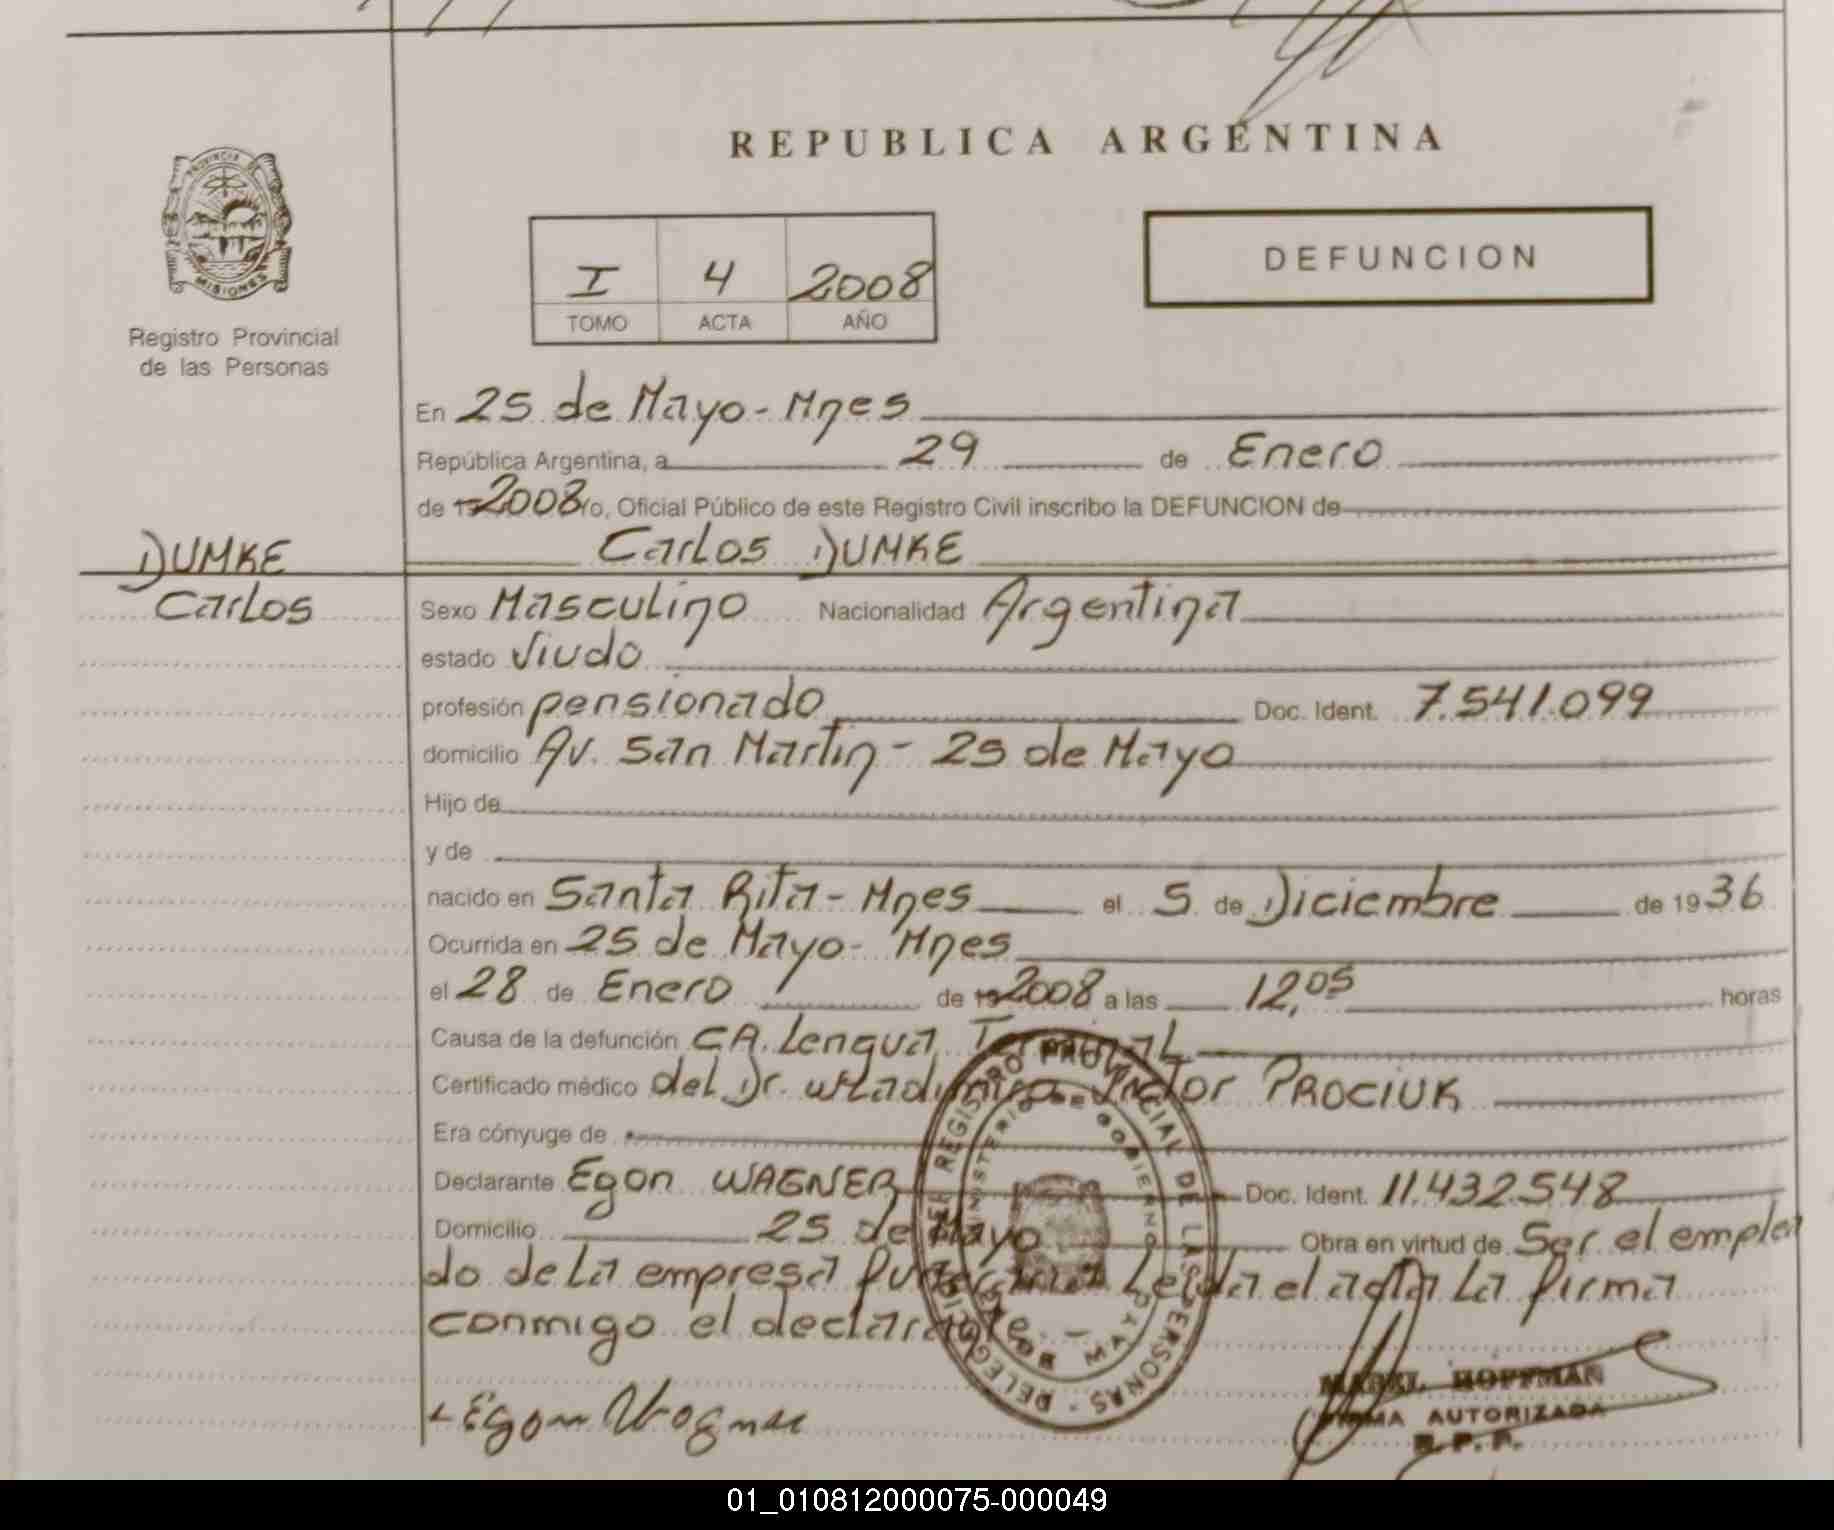 REPUBLICA ARGENTINA
PROVINCIA DE
MISIONES
Registro Provincial
de las Personas
I 4 2008
TOMO ACTA AÑO
DEFUNCION
En 25 de Mayo - Mnes
República Argentina, a 29 de Enero
de 19 2008 yo, Oficial Público de este Registro Civil inscribo la DEFUNCION de
DUMKE
Carlos
Carlos DUMKE
Sexo Masculino Nacionalidad Argentina
estado Viudo
profesión pensionado Doc. Ident. 7.541.099
domicilio Av. San Martin - 25 de Mayo
Hijo de
y de
nacido en Santa Rita - Mnes el 5 de Diciembre de 1936
Ocurrida en 25 de Mayo - Mnes
el 28 de Enero de 19 2008 a las 12,05 horas
Causa de la defunción CA. Lengua Terminal
Certificado médico del Dr. Wladimiro Victor PROCIUK
Era cónyuge de
Declarante Egon WAGNER Doc. Ident. 11.432.548
Domicilio 25 de Mayo Obra en virtud de Ser el emplea
do de la empresa funeraria Leida el acta La firma
conmigo el declarante. -
REGISTRO PROVINCIAL DE LAS PERSONAS - DELEGACION
MINISTERIO DE GOBIERNO
MAYO
Egon Wagner
MABEL HOFFMAN
FIRMA AUTORIZADA
R. P. P.
01_010812000075-000049